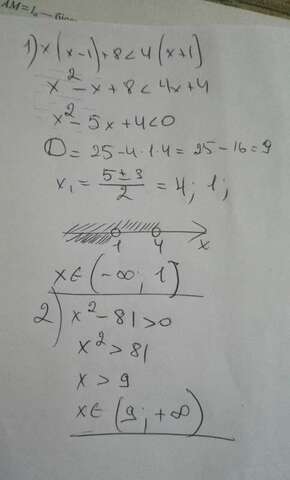 AM = l
1) x(x-1)+8<4(x+1)
x²-x+8<4x+4
x²-5x+4<0
D=25-4·1·4=25-16=9
x₁=(5±3)/2=4; 1;
1 4 x
x∈(-∞; 1]
2) x²-81>0
x²>81
x>9
x∈(9; +∞)